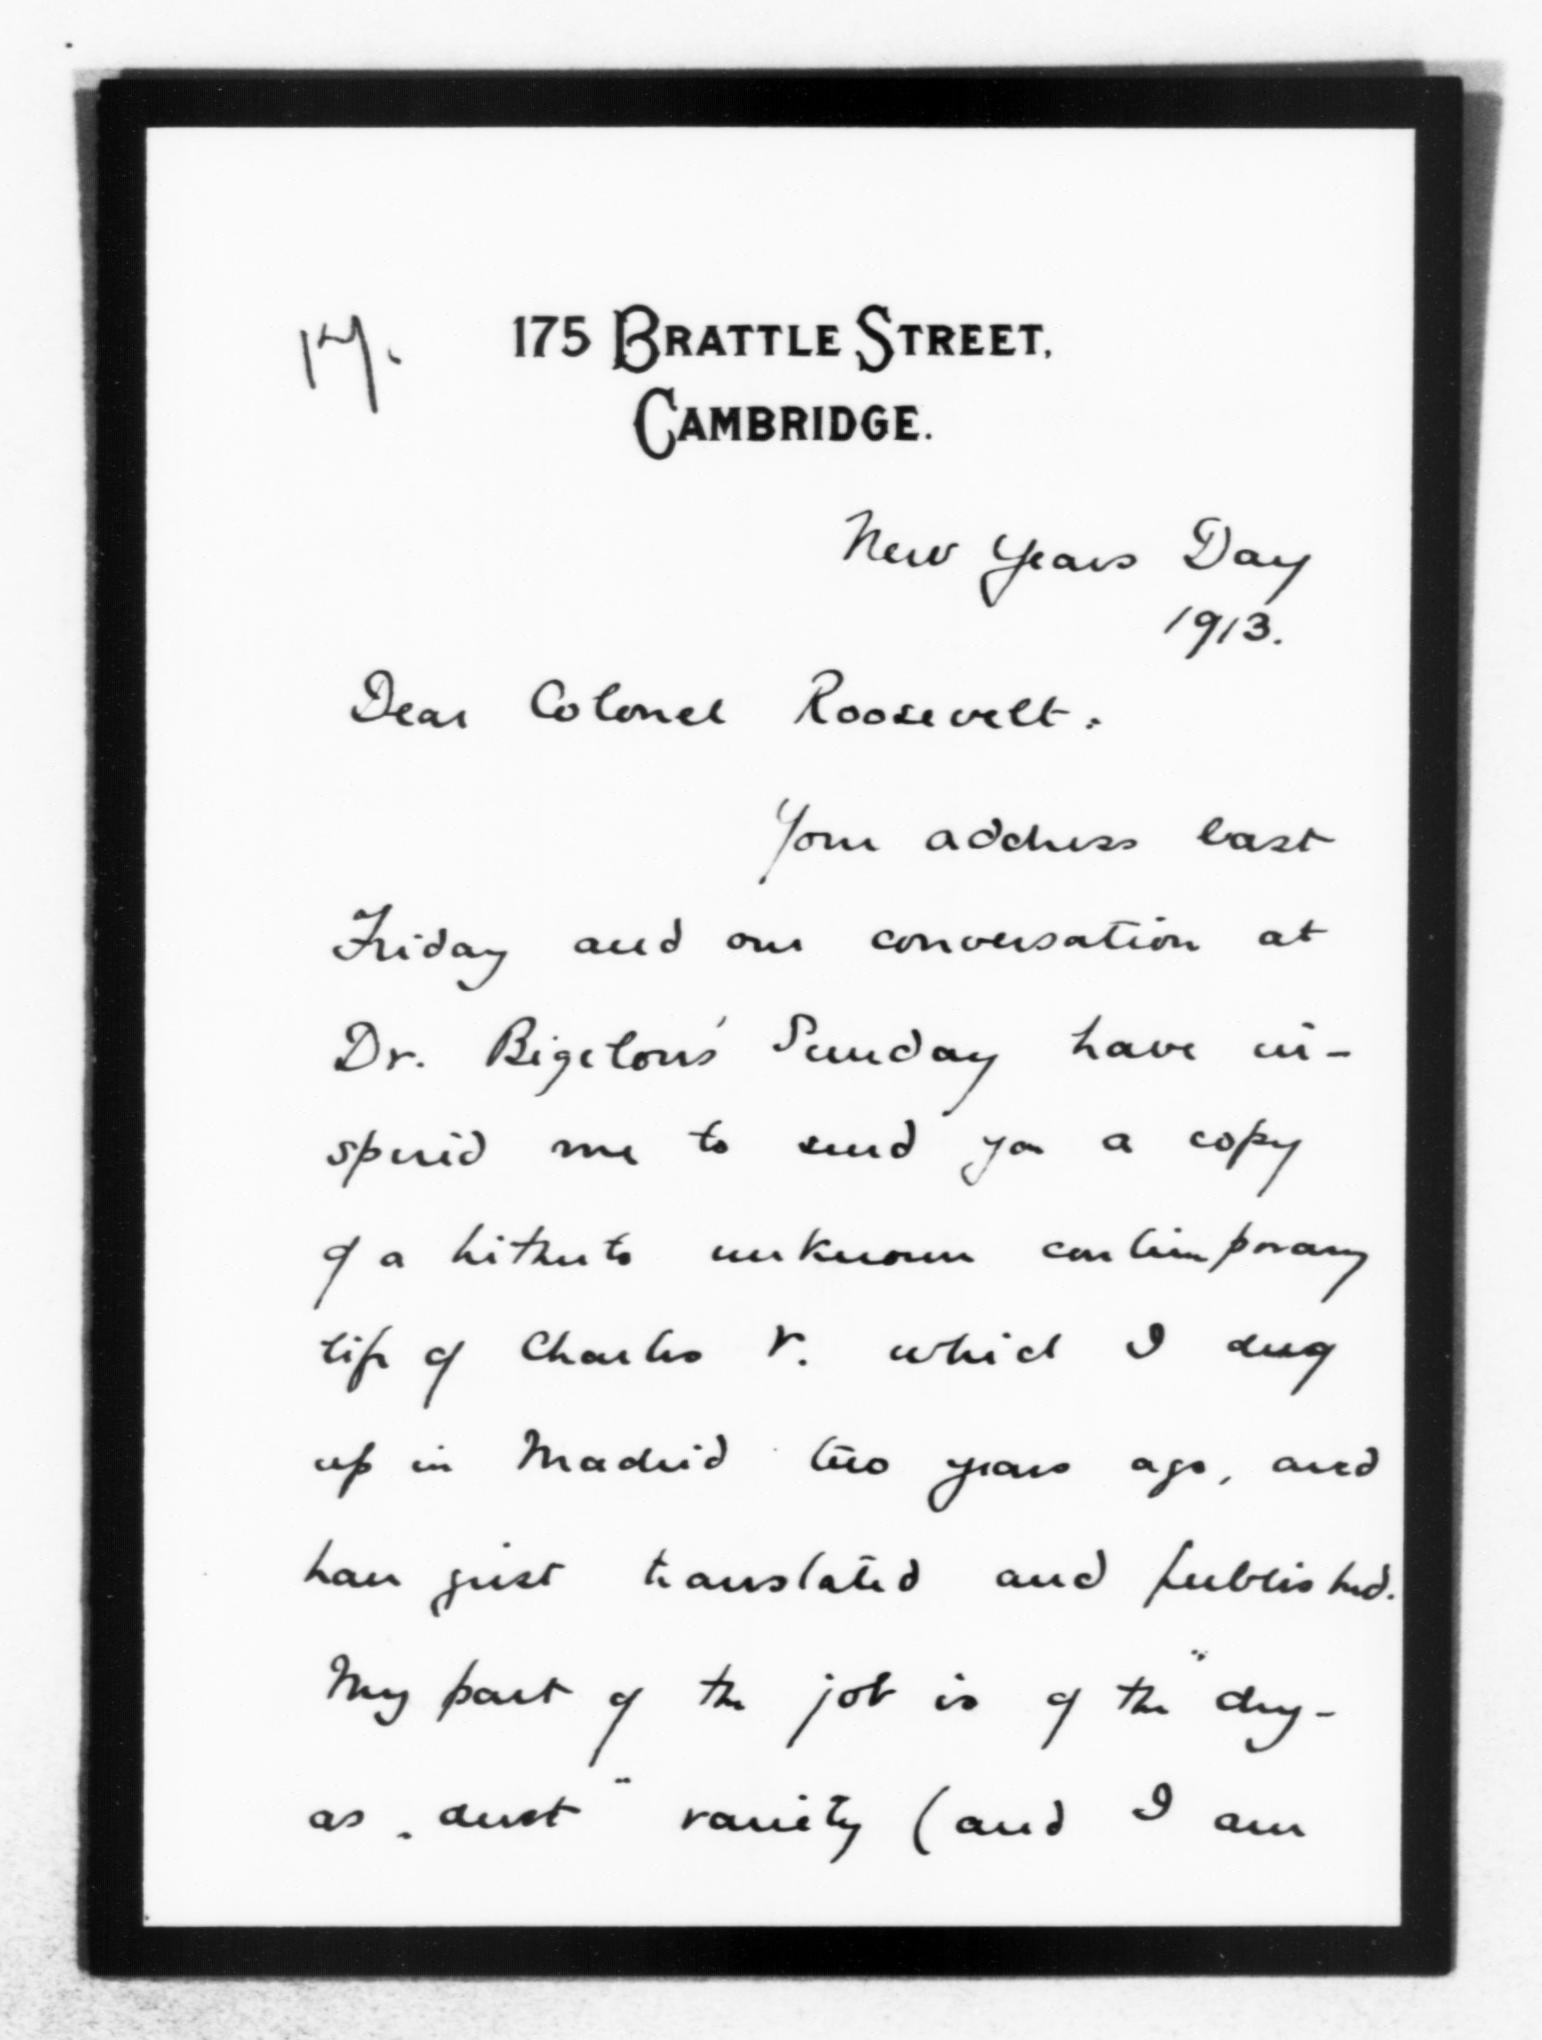 175 BRATTLE STREET,
CAMBRIDGE.
New Years Day
1913.
Dear Colonel Roosevelt:
Your address last
Friday and our conversation at
Dr. Bigelow's Sunday have in-
spired me to send you a copy
of a hitherto unknown contemporary
life of Charles V. which I dug
up in Madrid two years ago, and
have just translated and published.
My part of the job is of the "dry-
as-dust" variety (and I am